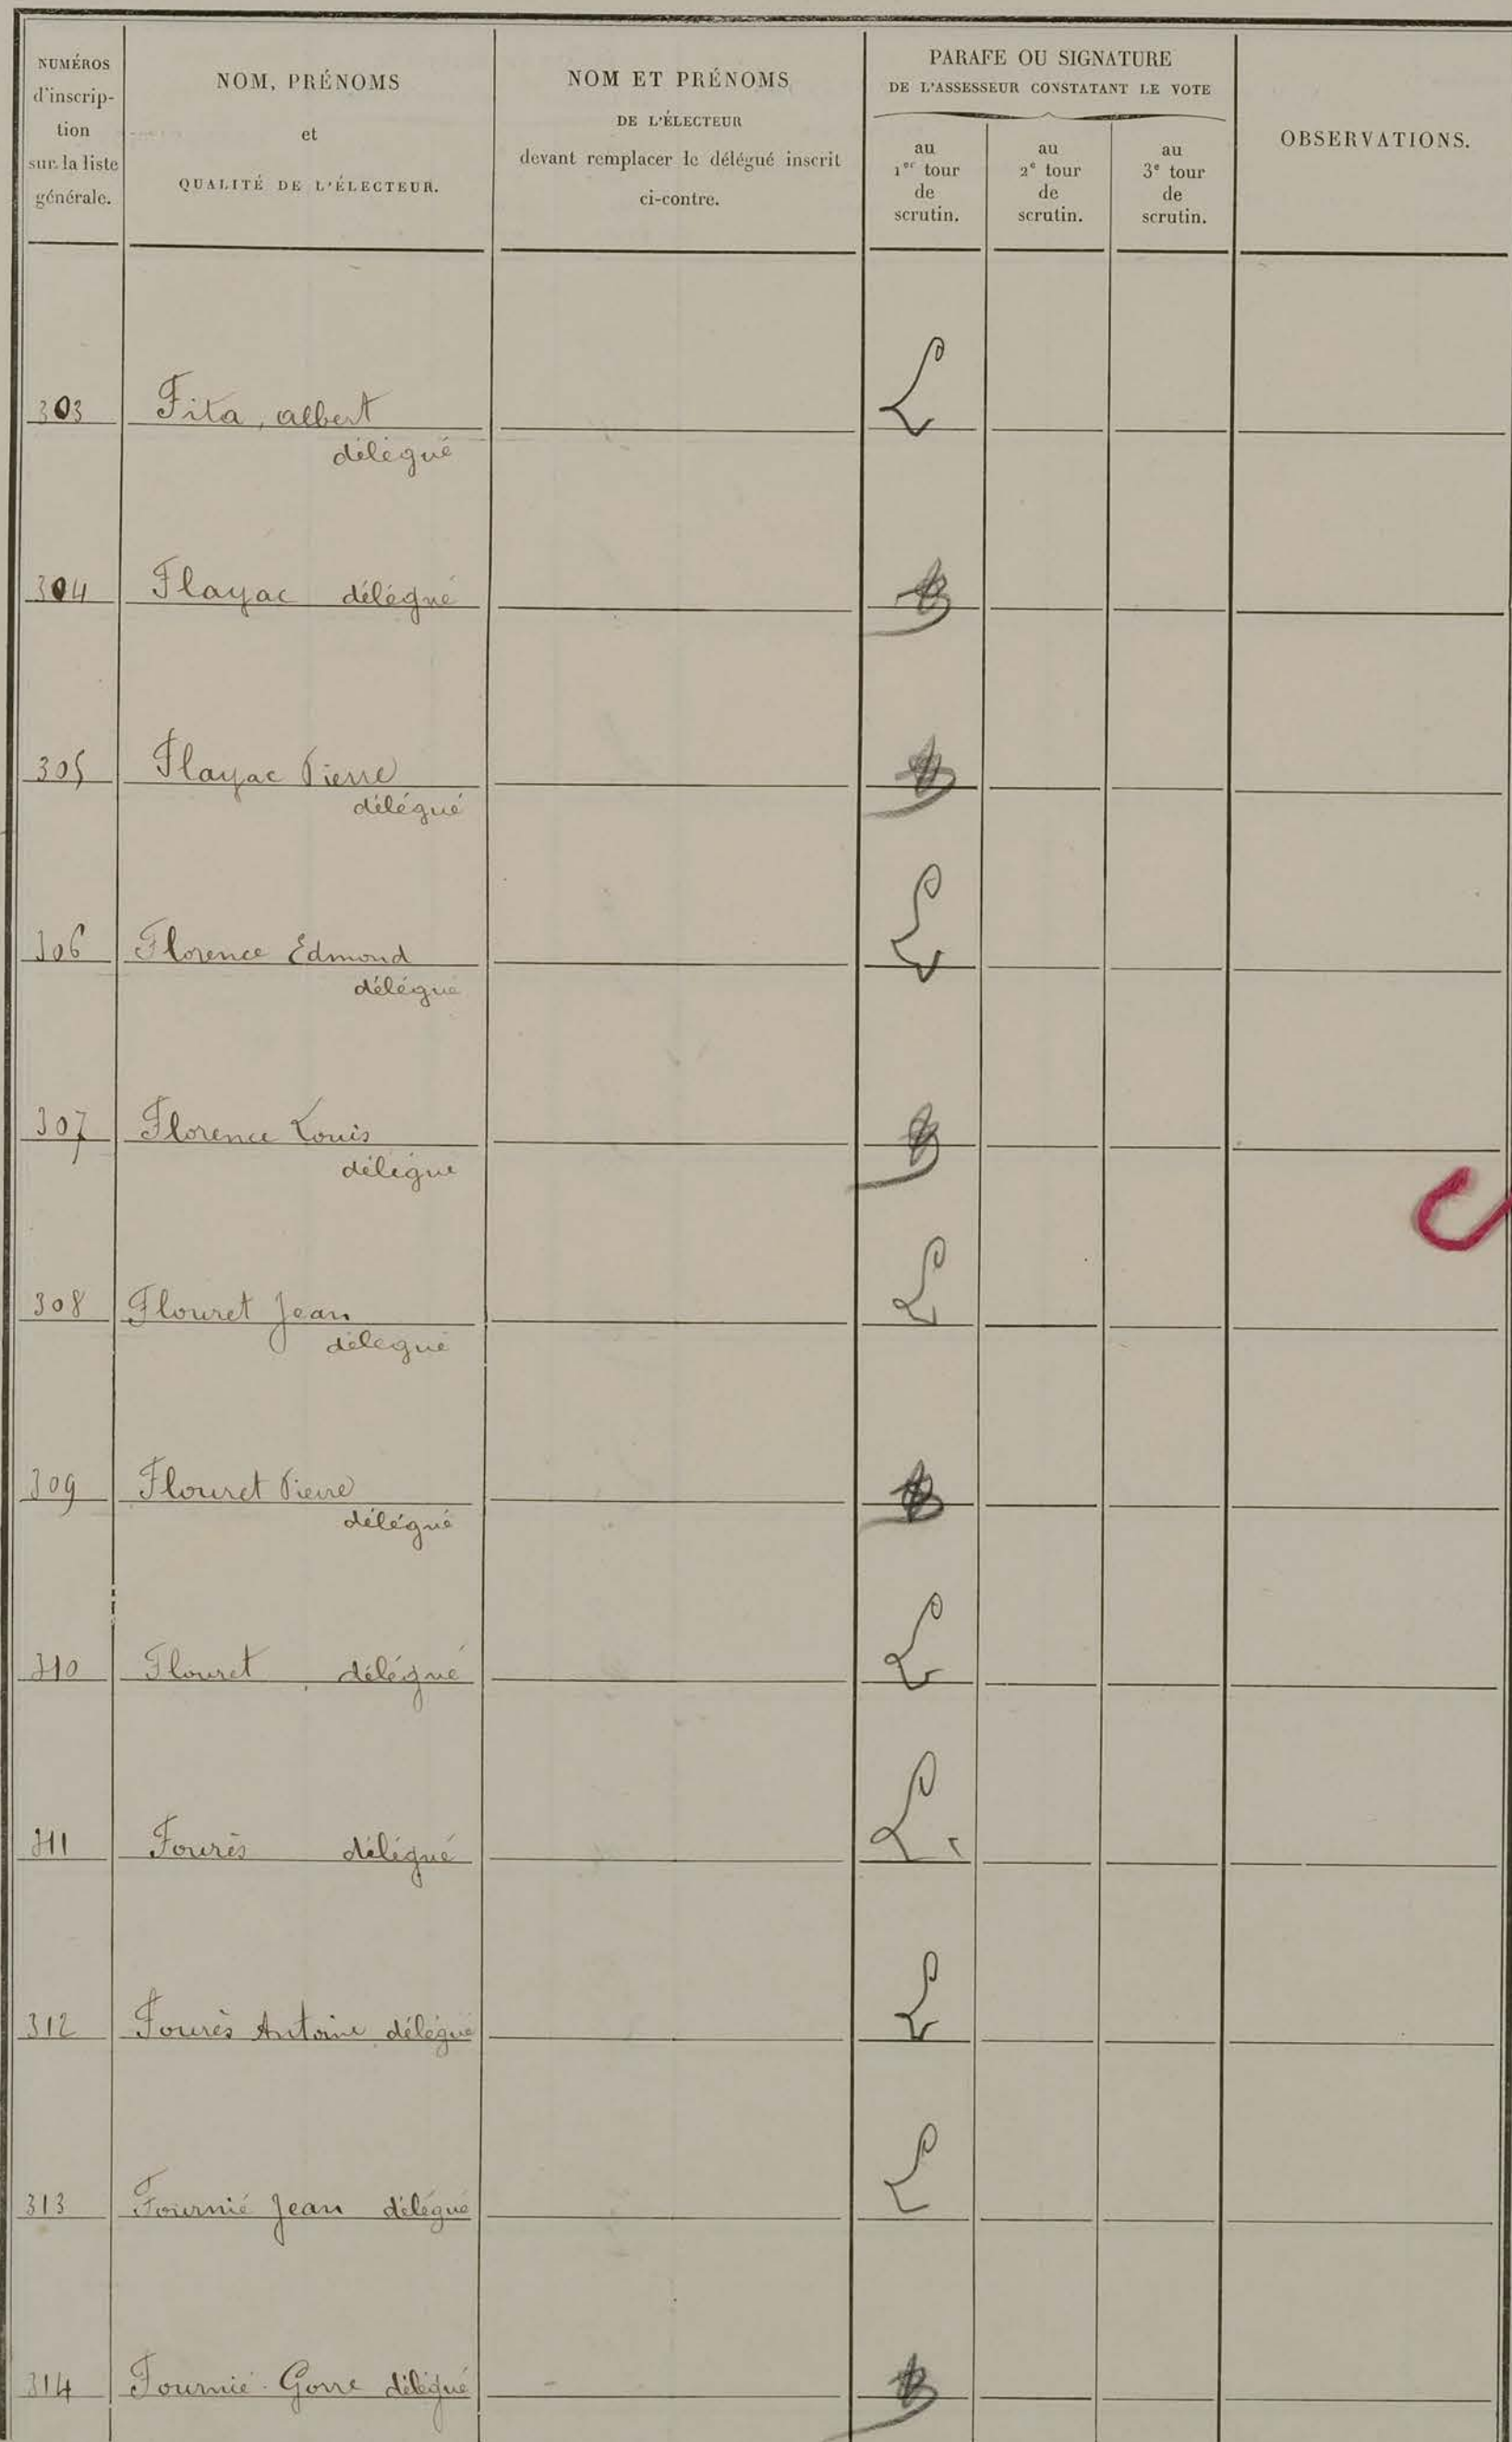 NUMÉROS
d'inscrip-
tion
sur la liste
générale.
NOM, PRÉNOMS
et
QUALITÉ DE L'ÉLECTEUR.
NOM ET PRÉNOMS
DE L'ÉLECTEUR
devant remplacer le délégué inscrit
ci-contre.
PARAFE OU SIGNATURE
DE L'ASSESSEUR CONSTATANT LE VOTE
au
1er tour
de
scrutin.
au
2e tour
de
scrutin.
au
3e tour
de
scrutin.
OBSERVATIONS.
303 Fita, albert
délégué
304 Flayac délégué
305 Flayac Pierre
délégué
306 Florence Edmond
délégué
307 Florence Louis
délégué
308 Flouret Jean
délégué
309 Flouret Pierre
délégué
310 Flouret délégué
311 Fourès délégué
312 Fourès Antoine délégué
313 Fournié Jean délégué
314 Fournié Gorre délégué